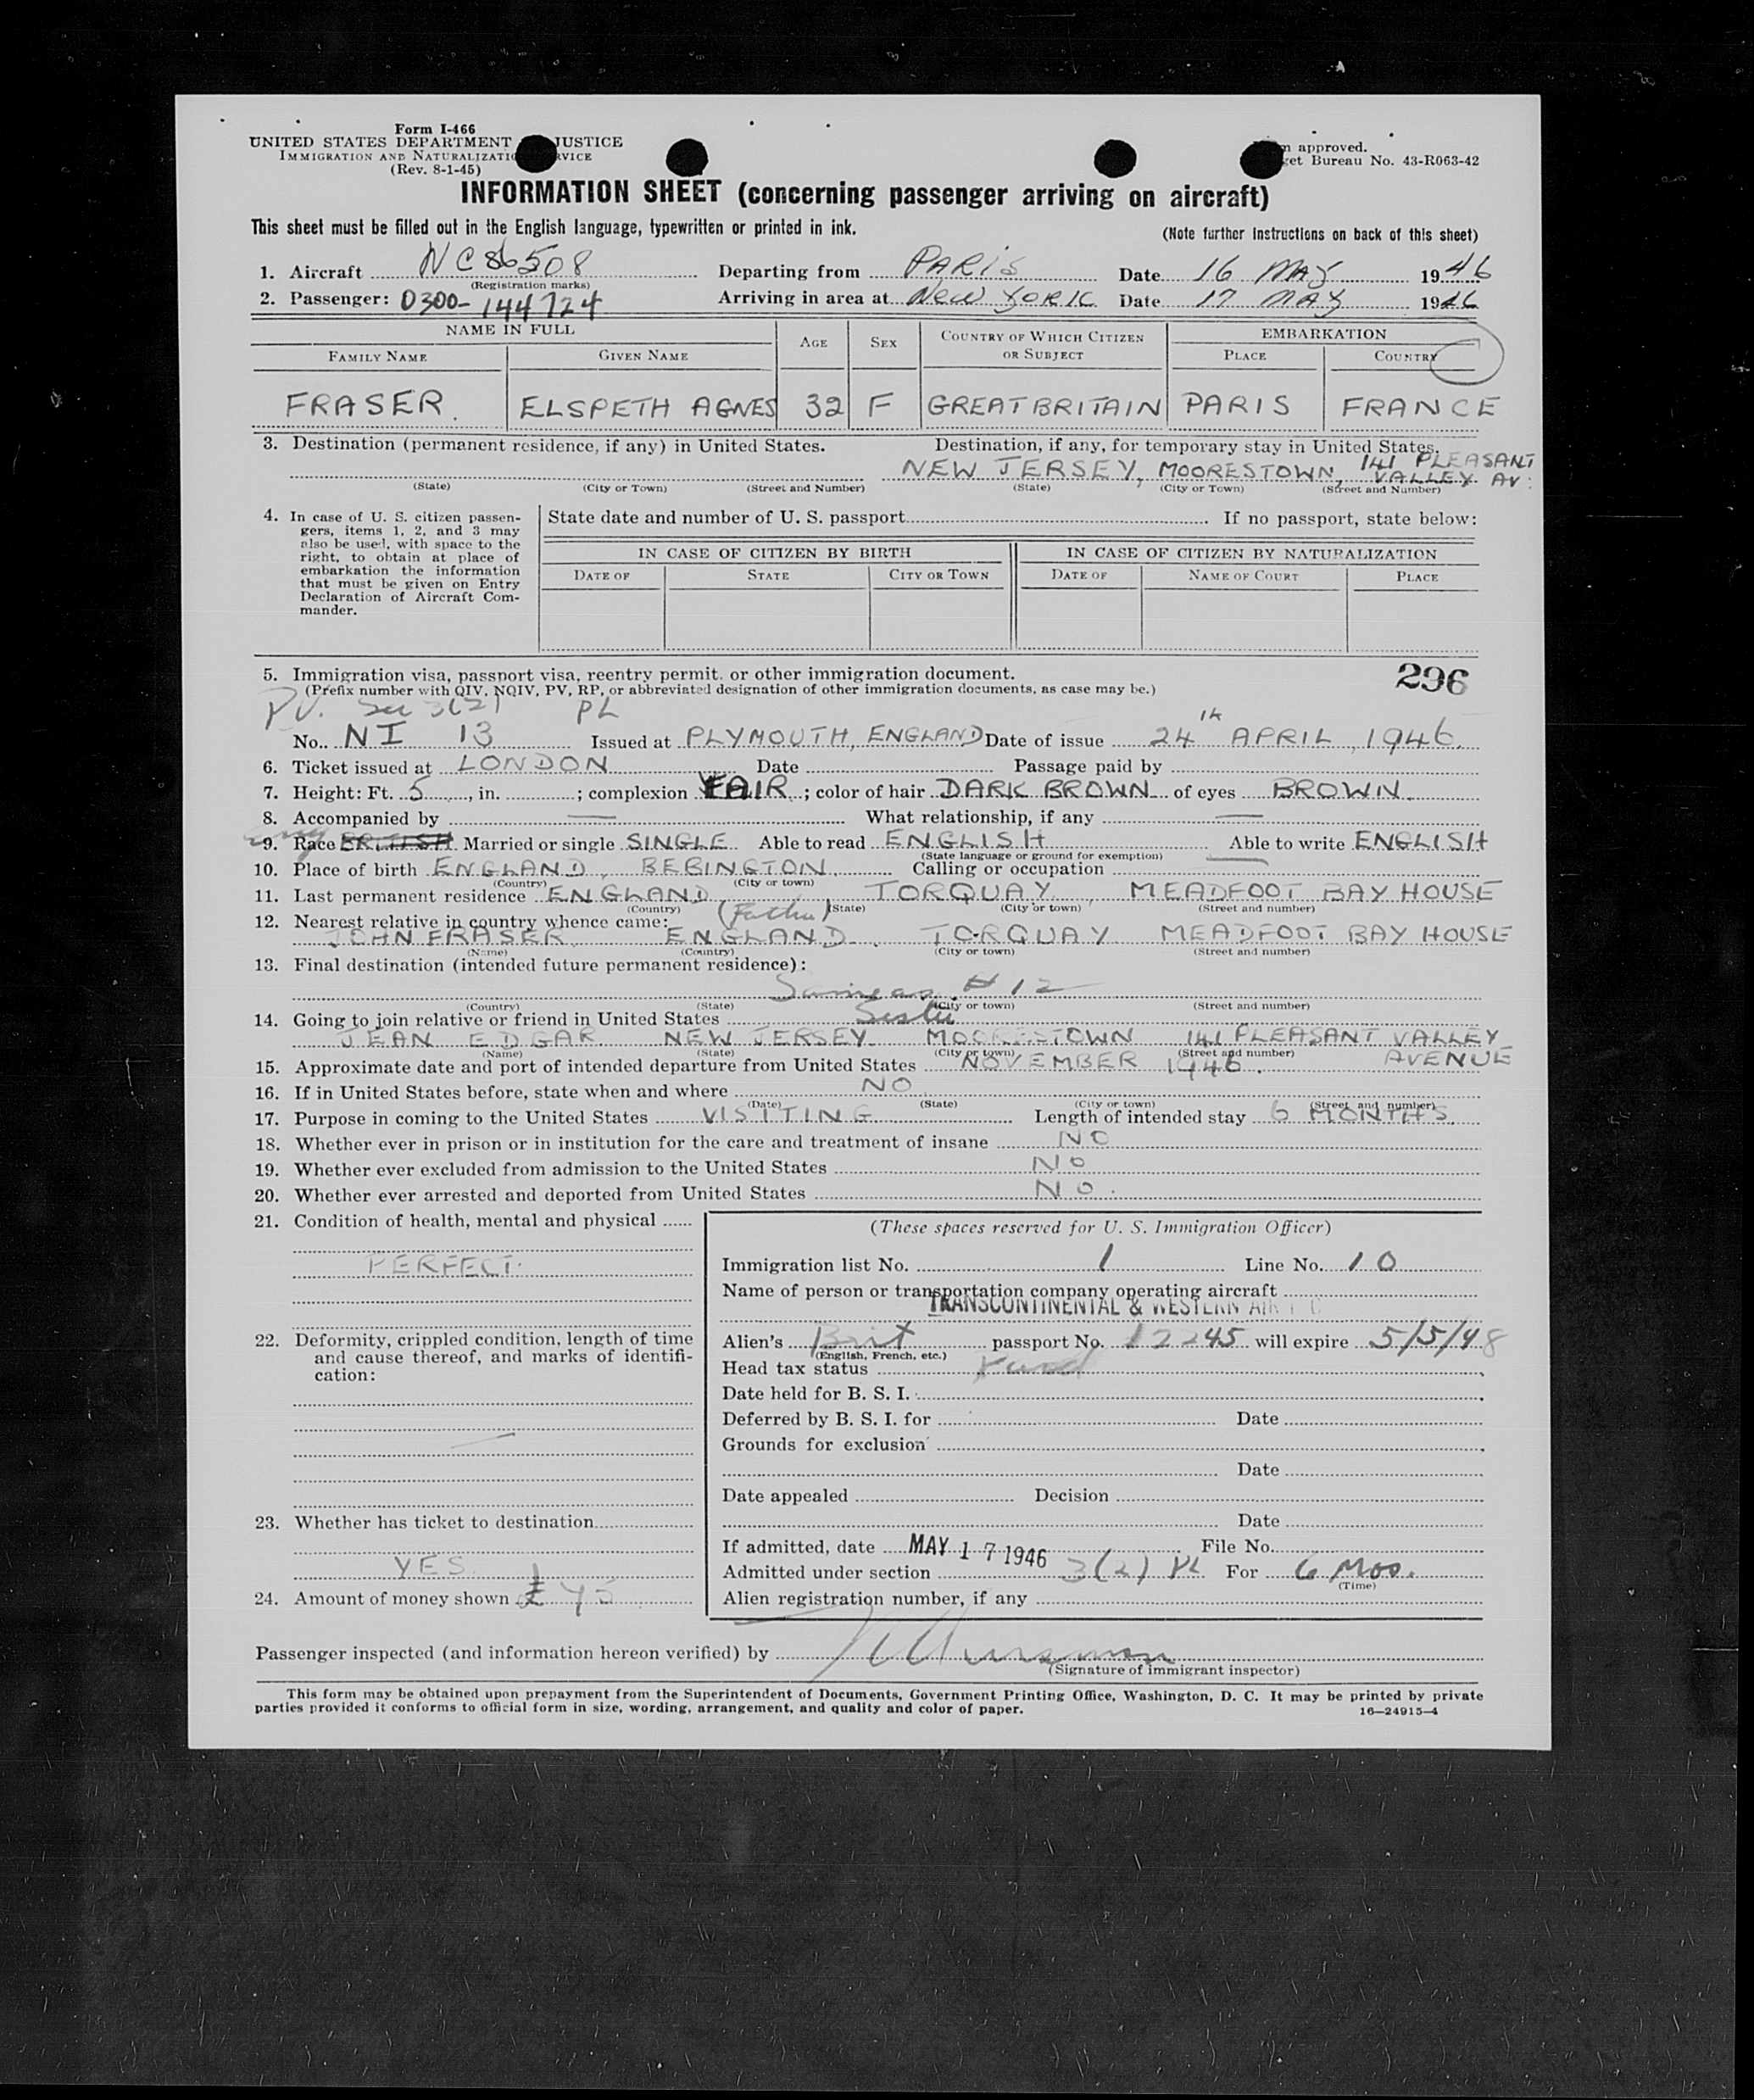 Form I-466
UNITED STATES DEPARTMENT JUSTICE
IMMIGRATION AND NATURALIZATI RVICE
(Rev. 8-1-45)
approved.
et Bureau No. 43-R063-42
INFORMATION SHEET (concerning passenger arriving on aircraft)
This sheet must be filled out in the English language, typewritten or printed in ink.
(Note further instructions on back of this sheet)
1. Aircraft NC86508 Departing from PARIS Date 16 MAY 1946
(Registration marks)
2. Passenger: 0300-144724 Arriving in area at NEW YORK Date 17 MAY 1946
NAME IN FULL AGE SEX COUNTRY OF WHICH CITIZEN OR SUBJECT EMBARKATION
FAMILY NAME GIVEN NAME PLACE COUNTRY
FRASER. ELSPETH AGNES 32 F GREAT BRITAIN PARIS FRANCE
3. Destination (permanent residence, if any) in United States. Destination, if any, for temporary stay in United States.
NEW JERSEY, MOORESTOWN, 141 PLEASANT VALLEY AV:
(State) (City or Town) (Street and Number) (State) (City or Town) (Street and Number)
4. In case of U. S. citizen passen-
gers, items 1, 2, and 3 may
also be used, with space to the
right, to obtain at place of
embarkation the information
that must be given on Entry
Declaration of Aircraft Com-
mander.
State date and number of U. S. passport If no passport, state below:
IN CASE OF CITIZEN BY BIRTH IN CASE OF CITIZEN BY NATURALIZATION
DATE OF STATE CITY OR TOWN DATE OF NAME OF COURT PLACE
5. Immigration visa, passport visa, reentry permit, or other immigration document. 296
(Prefix number with QIV, NQIV, PV, RP, or abbreviated designation of other immigration documents, as case may be.)
PV. Sec 3(2) PL
No. NI 13 Issued at PLYMOUTH, ENGLAND Date of issue 24th APRIL, 1946.
6. Ticket issued at LONDON Date Passage paid by
7. Height: Ft. 5, in. ; complexion FAIR ; color of hair DARK BROWN of eyes BROWN
8. Accompanied by — What relationship, if any —
9. Race BRITISH Married or single SINGLE Able to read ENGLISH Able to write ENGLISH
(State language or ground for exemption)
10. Place of birth ENGLAND, BEBINGTON. Calling or occupation —
(Country) (City or town)
11. Last permanent residence ENGLAND, TORQUAY, MEADFOOT BAY HOUSE
(Country) (State) (City or town) (Street and number)
12. Nearest relative in country whence came: (Father)
JOHN FRASER ENGLAND. TORQUAY MEADFOOT BAY HOUSE
(Name) (Country) (City or town) (Street and number)
13. Final destination (intended future permanent residence):
Same as #12
(Country) (State) (City or town) (Street and number)
14. Going to join relative or friend in United States Sister
JEAN EDGAR NEW JERSEY MOORESTOWN 141 PLEASANT VALLEY AVENUE
(Name) (State) (City or town) (Street and number)
15. Approximate date and port of intended departure from United States NOVEMBER 1946.
16. If in United States before, state when and where NO
(Date) (State) (City or town) (Street and number)
17. Purpose in coming to the United States VISITING Length of intended stay 6 MONTHS
18. Whether ever in prison or in institution for the care and treatment of insane NO
19. Whether ever excluded from admission to the United States NO
20. Whether ever arrested and deported from United States NO.
21. Condition of health, mental and physical
PERFECT.
22. Deformity, crippled condition, length of time
and cause thereof, and marks of identifi-
cation:
—
23. Whether has ticket to destination
YES
24. Amount of money shown £ 45
(These spaces reserved for U. S. Immigration Officer)
Immigration list No. 1 Line No. 10
Name of person or transportation company operating aircraft
TRANSCONTINENTAL & WESTERN AIR
Alien's Brit passport No. 12245 will expire 5/5/48
(English, French, etc.)
Head tax status
Date held for B. S. I.
Deferred by B. S. I. for Date
Grounds for exclusion
Date
Date appealed Decision
Date
If admitted, date MAY 17 1946 File No.
Admitted under section 3(2) PL For 6 Mos.
(Time)
Alien registration number, if any
Passenger inspected (and information hereon verified) by
(Signature of immigrant inspector)
This form may be obtained upon prepayment from the Superintendent of Documents, Government Printing Office, Washington, D. C. It may be printed by private
parties provided it conforms to official form in size, wording, arrangement, and quality and color of paper. 16—24915-4